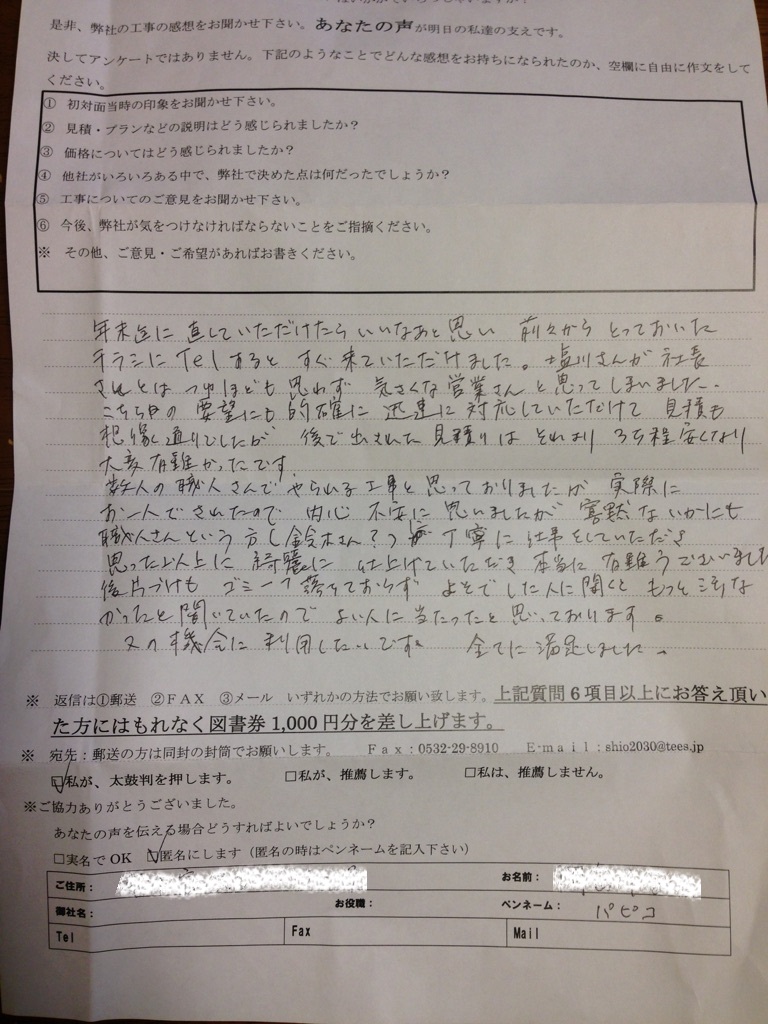 是非、弊社の工事の感想をお聞かせ下さい。あなたの声が明日の私達の支えです。
決してアンケートではありません。下記のようなことでどんな感想をお持ちになられたのか、空欄に自由に作文をして
ください。
① 初対面当時の印象をお聞かせ下さい。
② 見積・プランなどの説明はどう感じられましたか?
③ 価格についてはどう感じられましたか?
④ 他社がいろいろある中で、弊社で決めた点は何だったでしょうか?
⑤ 工事についてのご意見をお聞かせ下さい。
⑥ 今後、弊社が気をつけなければならないことをご指摘ください。
※ その他、ご意見・ご希望があればお書きください。
年末迄に 直していただけたら いいなあと思い 前々から とっておいた
チラシに Tel すると すぐ来ていただけました。塩川さんが 社長
さんとは つゆほども 思わず 気さくな営業さん と思ってしまいました。
こちら側の 要望にも 的確に 迅速に 対応していただけて 見積も
想像通りでしたが 後で出された見積りは それより 3万程安くなり
大変有難かったです。
数人の職人さんで やられる工事と思っておりましたが 実際に
お一人でされたので 内心 不安に思いましたが 寡黙ないかにも
職人さんという方(鈴木さん?)が 丁寧に仕事をしていただき
思った以上に 綺麗に 仕上げていただき 本当に 有難うございました
後片づけも ゴミ一つ 落ちておらず よそでした人に聞くと もっと
かったと聞いていたので よい人に当たったと思っております。
又の機会に利用したいです。 全てに満足しました。
※ 返信は①郵送 ②FAX ③メール いずれかの方法でお願い致します。上記質問6項目以上にお答え頂い
た方にはもれなく図書券1,000円分を差し上げます。
※ 宛先:郵送の方は同封の封筒でお願いします。 Fax:0532-29-8910 E-mail:shio2030@tees.jp
☑私が、太鼓判を押します。 □私が、推薦します。 □私は、推薦しません。
※ご協力ありがとうございました。
あなたの声を伝える場合どうすればよいでしょうか?
□実名でOK ☑匿名にします(匿名の時はペンネームを記入下さい)
ご住所: お名前:
御社名: お役職: ペンネーム: パピコ
Tel Fax Mail